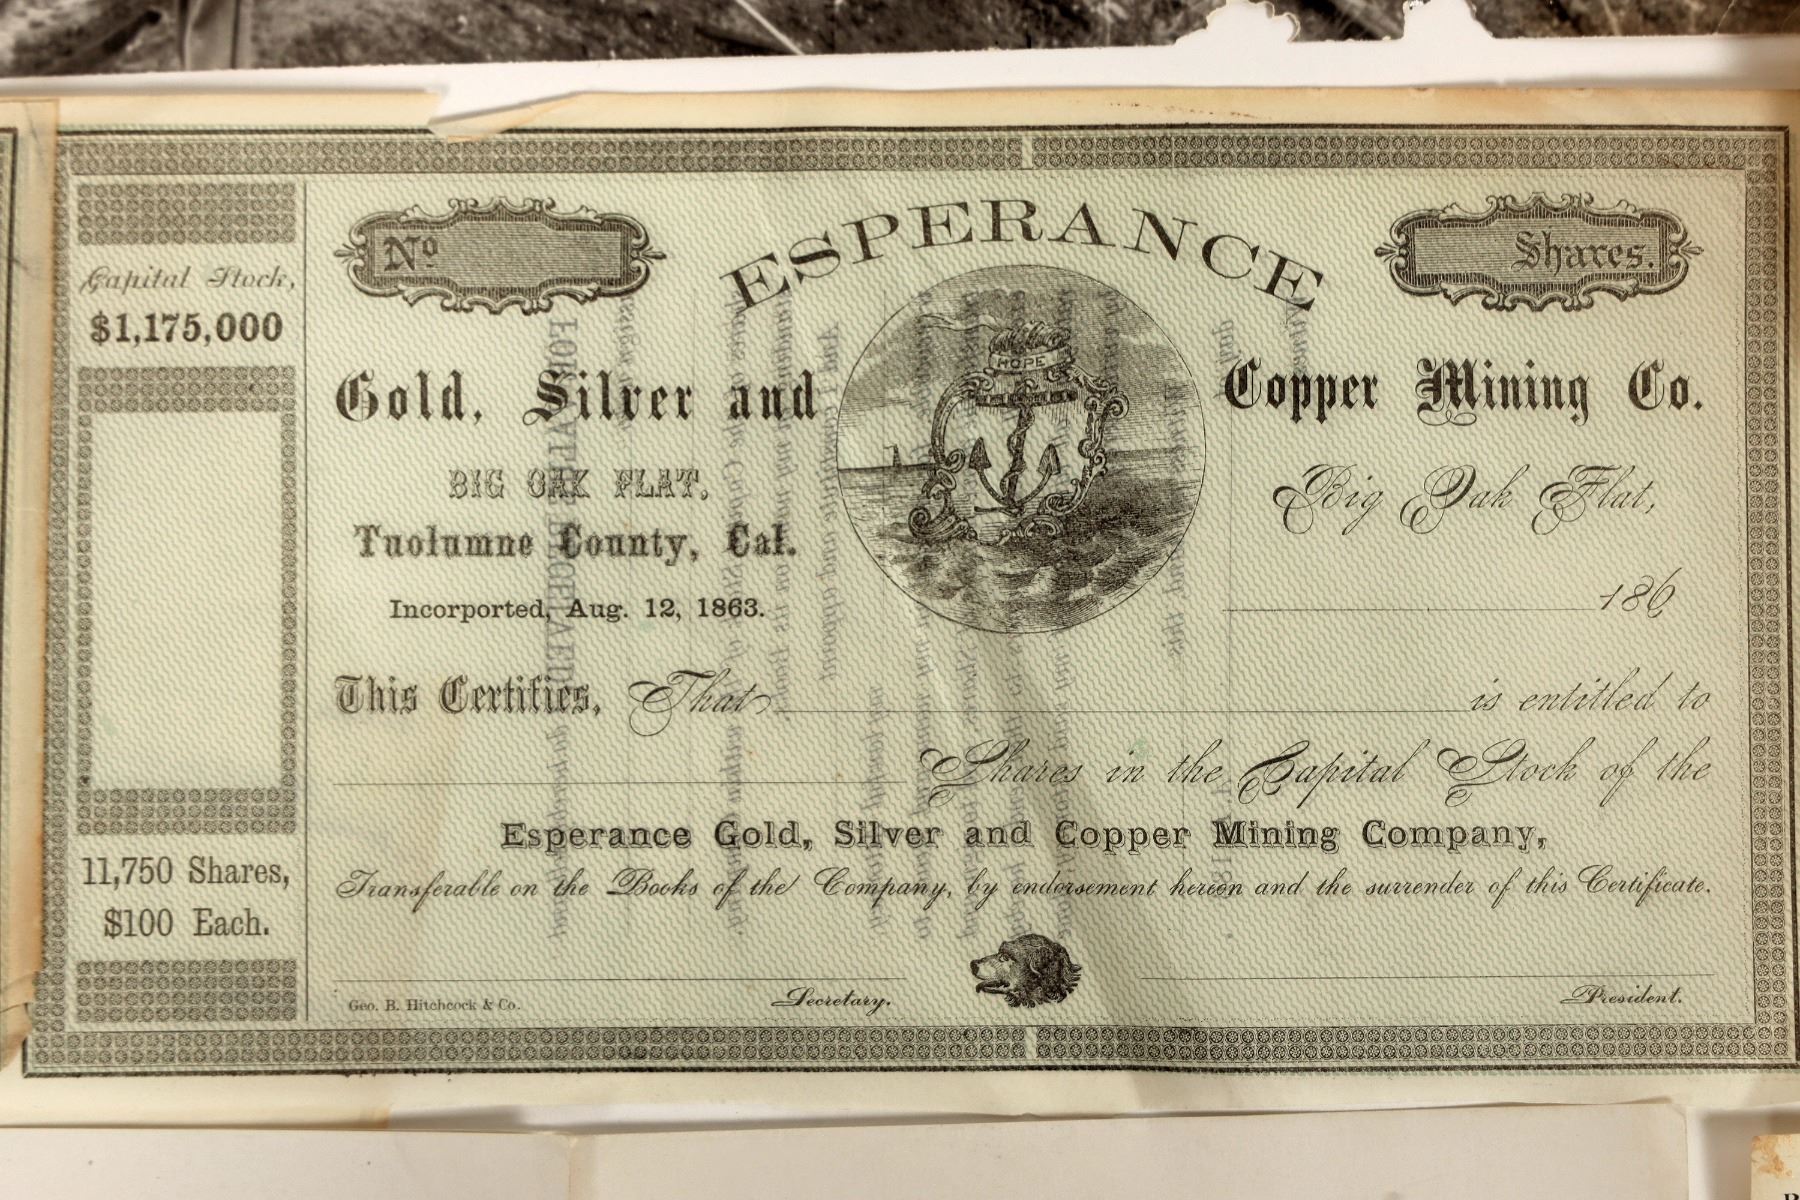 Capital Stock,
$1,175,000
11,750 Shares,
$100 Each.
No
Shares.
ESPERANCE
HOPE
Gold, Silver and Copper Mining Co.
BIG OAK FLAT,
Tuolumne County, Cal.
Incorporated, Aug. 12, 1863.
Big Oak Flat,
186
This Certifies, That is entitled to
Shares in the Capital Stock of the
Esperance Gold, Silver and Copper Mining Company,
Transferable on the Books of the Company, by endorsement hereon and the surrender of this Certificate.
Geo. B. Hitchcock & Co.
Secretary.
President.
FOR VALUE RECEIVED